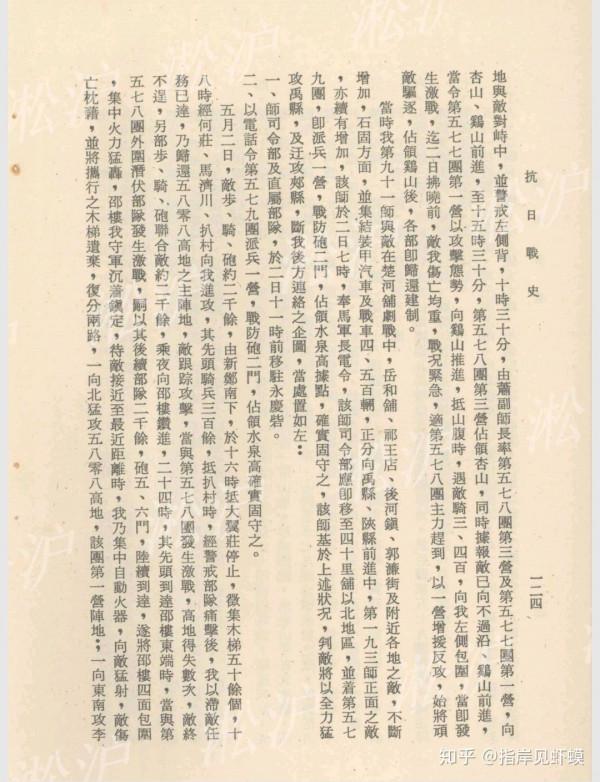 抗日戰史
一二四
地與敵對峙中，並警戒左側背，十時三十分，由蕭副師長率第五七八團第三營及第五七七團第一營，向
杏山、鷄山前進，至十五時三十分，第五七八團第三營佔領杏山，同時據報敵已向不過沿、鷄山前進，
當令第五七七團第一營以攻擊態勢，向鷄山推進，抵山腹時，遇敵騎三、四百，向我左側包圍，當卽發
生激戰，迄二日拂曉前，敵我傷亡均重，戰况緊急，適第五七八團主力趕到，以一營增援反攻，始將頑
敵驅逐，佔領鷄山後，各部卽歸還建制。
當時我第九十一師與敵在楚河舖劇戰中，岳和舖、祁王店、後河鎭、郭濂街及附近各地之敵，不斷
增加，石固方面，並集結裝甲汽車及戰車四、五百輛，正分向禹縣、陜縣前進中，第一九三師正面之敵
，亦續有增加，該師於二日七時，奉馬軍長電令，該師司令部應卽移至四十里舖以北地區，並着第五七
九團，卽派兵一營，戰防砲二門，佔領水泉高據點，確實固守之，該師基於上述狀况，判敵將以全力猛
攻禹縣，及迂攻郟縣，斷我後方連絡之企圖，當處置如左：
一、師司令部及直屬部隊，於二日十一時前移駐永慶砦。
二、以電話令第五七九團派兵一營，戰防砲二門，佔領水泉高確實固守之。
五月二日，敵步、騎、砲約二千餘，由新鄭南下，於十六時抵大冀莊停止，徵集木梯五十餘個，十
八時經何莊、馬濟川、扒村向我進攻，其先頭騎兵三百餘，抵扒村時，經警戒部隊痛擊後，我以滯敵任
務已達，乃歸還五八零八高地之主陣地，敵跟踪攻擊，當與第五七八團發生激戰，高地得失數次，敵終
不逞，另部步、騎、砲聯合敵約二千餘，乘夜向邵樓鑽進，二十四時，其先頭到達邵樓東端時，當與第
五七八團外圍潛伏部隊發生激戰，嗣以其後續部隊二千餘，砲五、六門，陸續到達，遂將邵樓四面包圍
，集中火力猛轟，邵樓我守軍沉着鎭定，待敵接近至最近距離時，我乃集中自動火器，向敵猛射，敵傷
亡枕藉，並將攜行之木梯遺棄，復分兩路，一向北猛攻五八零八高地，該團第一營陣地；一向東南攻李
知乎 @指岸见虾蟆
淞沪